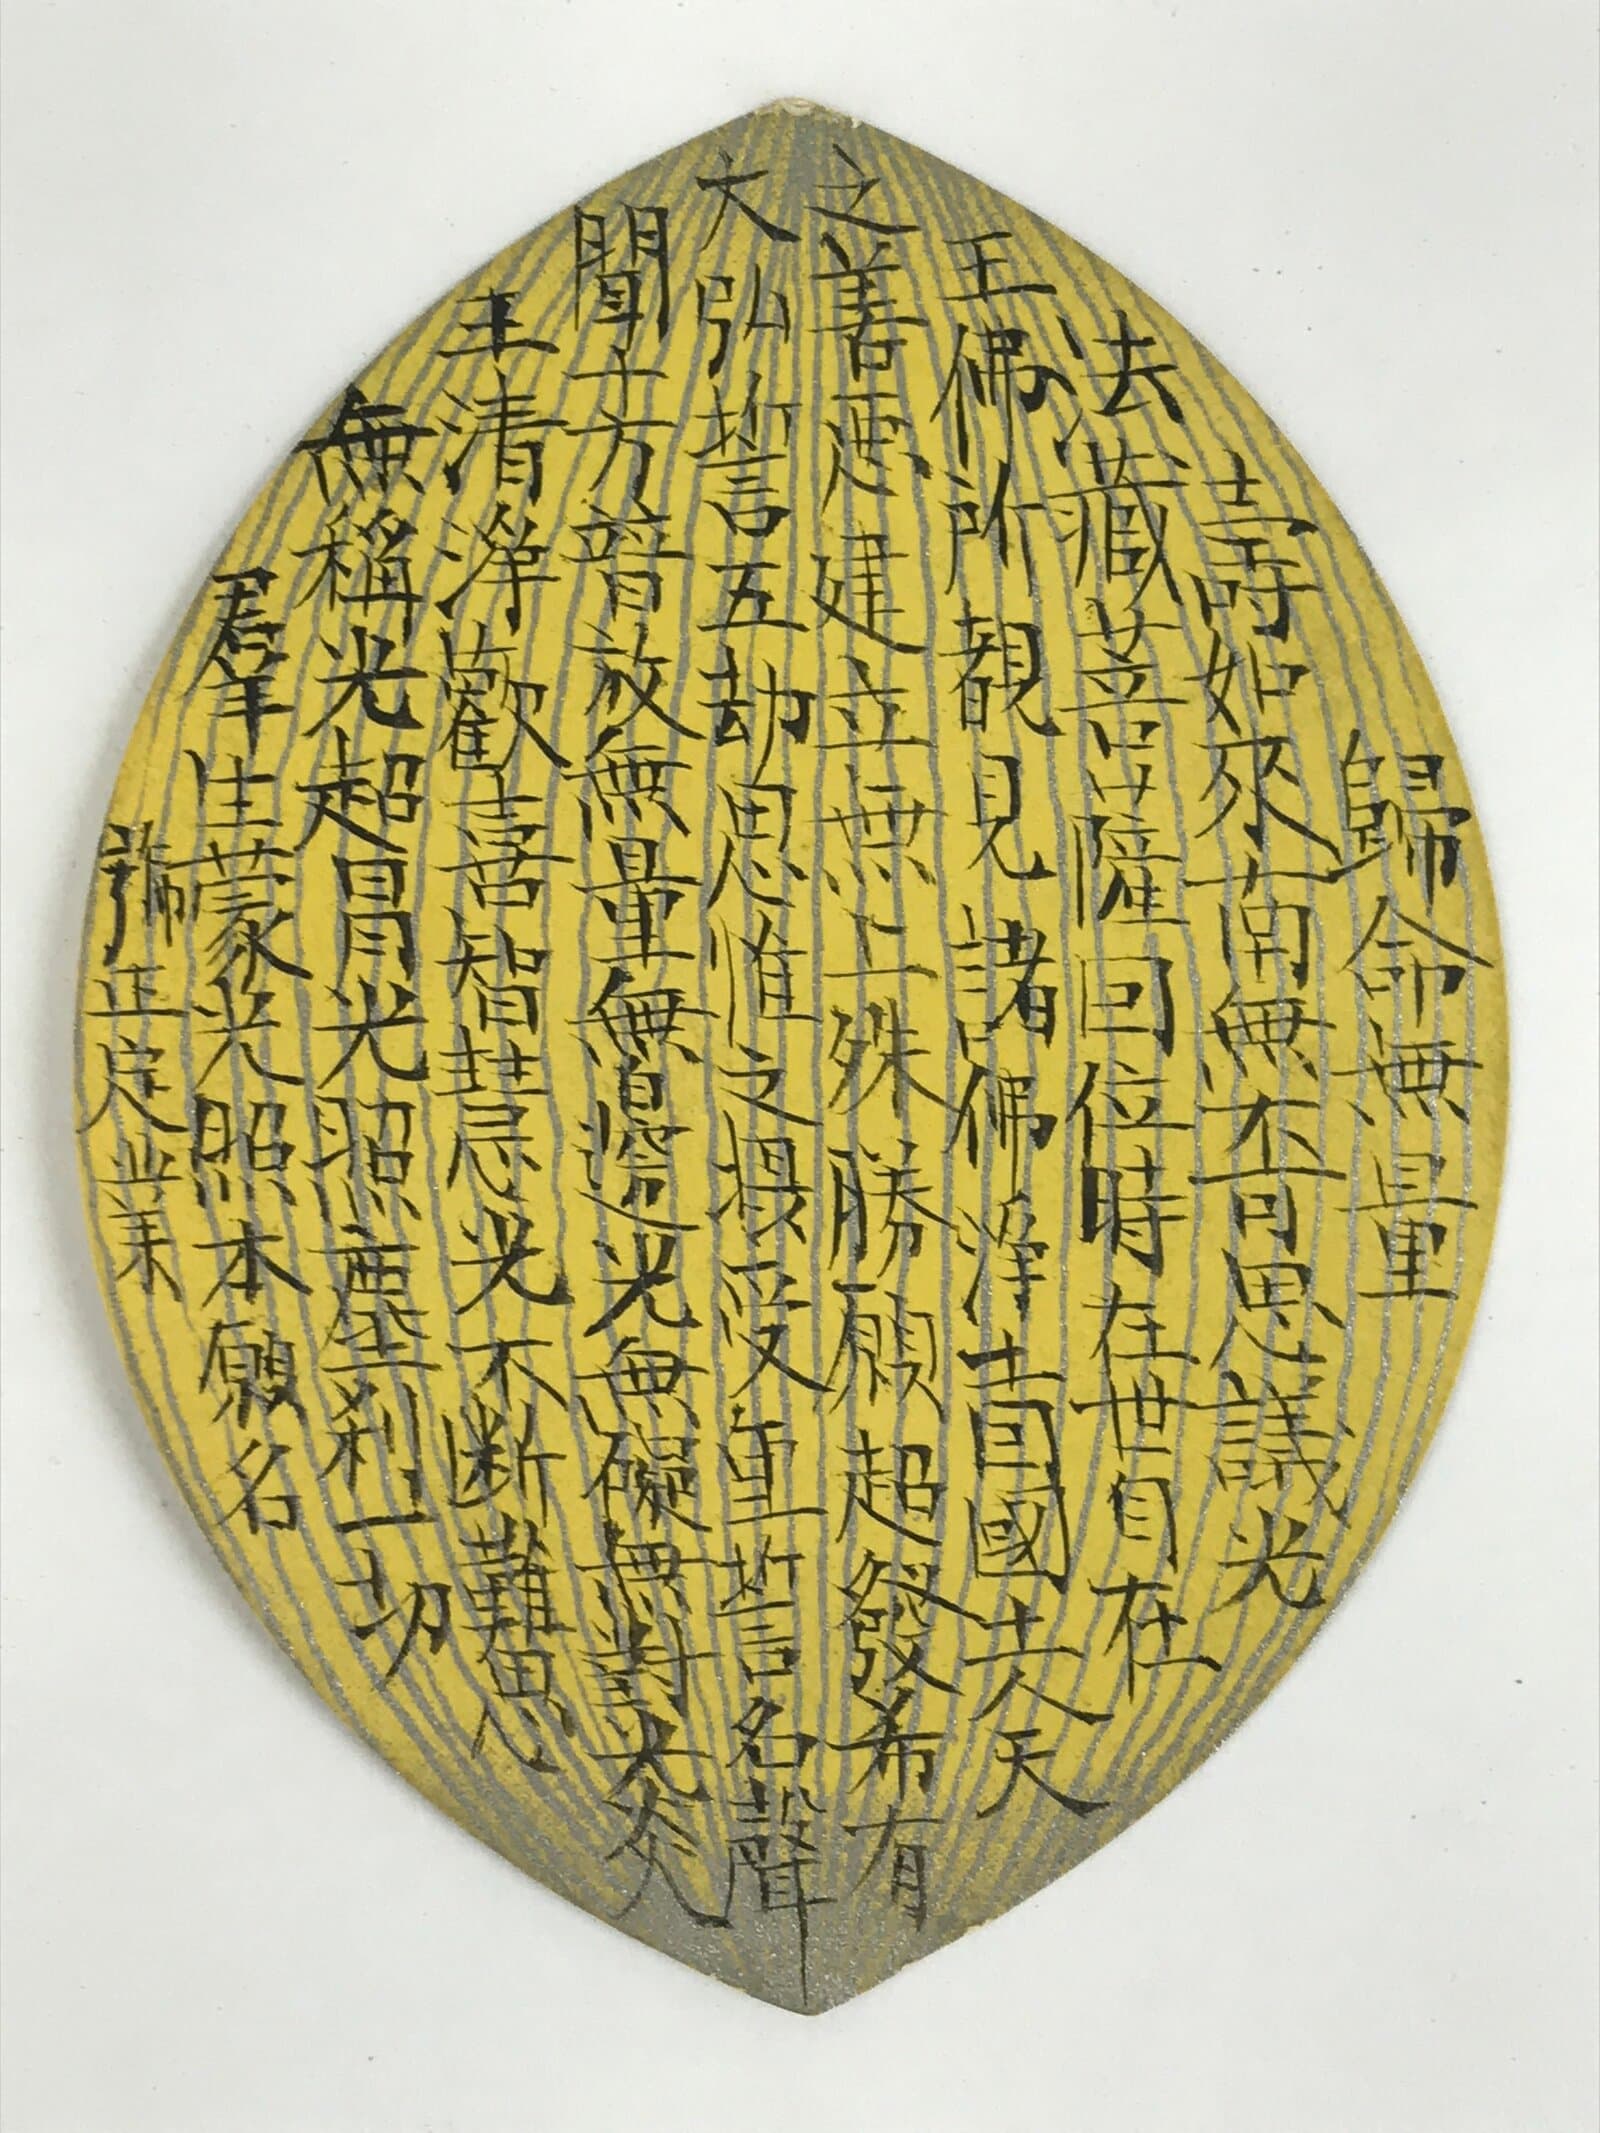 歸命無量
壽如來南無不可思議光
法藏菩薩因位時在世自在
王佛所覩見諸佛淨土因國土人天
之善悪建立無上殊勝願超發希有
大弘誓五劫思惟之摂受重誓名聲
聞十方普放無量無邊光無礙無對光炎
王清淨歡喜智慧光不断難思
無稱光超日月光照塵刹一切
羣生蒙光照本願名
號正定業